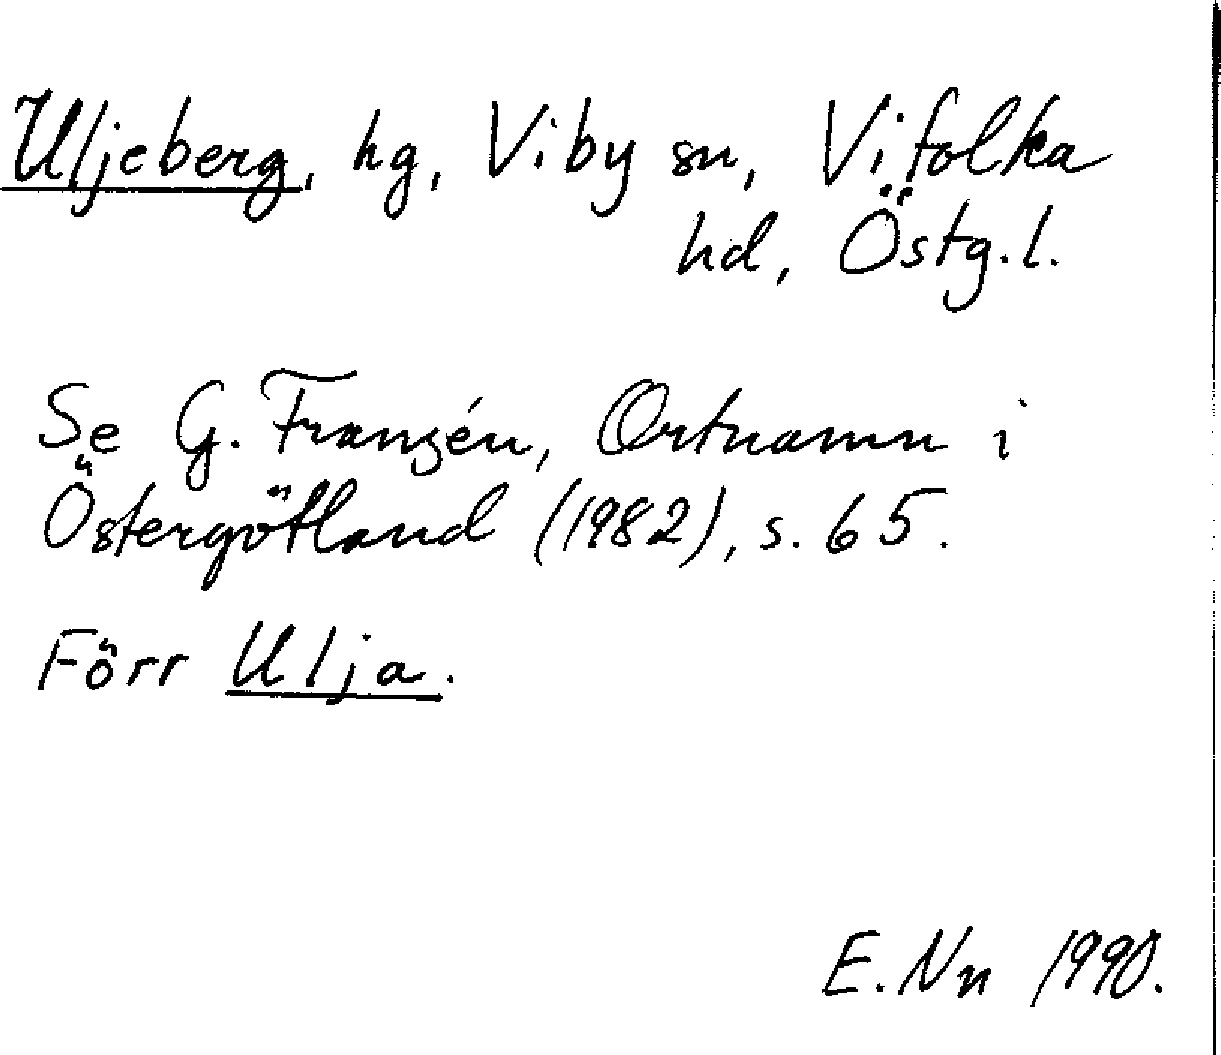 Uljeberg, hg, Viby sn, Vifolka
hd, Östg.l.
Se G. Franzén, Ortnamn i
Östergötland (1982), s. 65.
Förr Ulja.
E. Nn 1990.